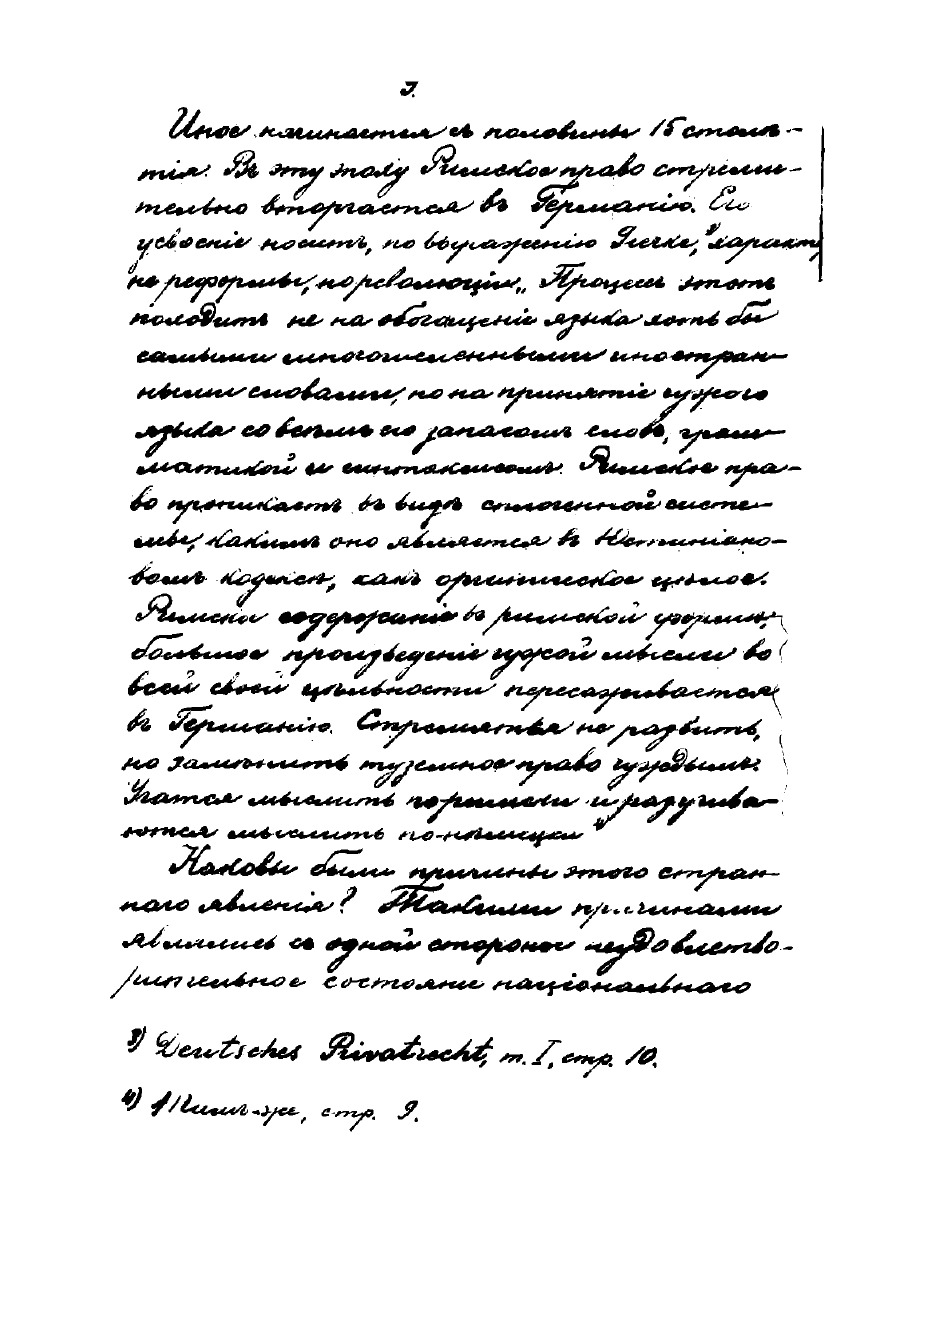 3.
Иное начинается съ половины 15 столѣ-
тія. Въ эту эпоху Римское право стреми-
тельно вторгается въ Германію. Его
усвоеніе носитъ, по выраженію Гирке, ³⁾ "характ.
не реформы, но революціи„. Процессъ этотъ
походитъ не на обогащеніе языка хотя бы
самыми многочисленными иностран-
ными словами, но на принятіе чужого
языка со всѣмъ его запасомъ словъ, грам-
матикой и синтаксисомъ. Римское пра-
во проникаетъ въ видѣ сплоченной систе-
мы, какимъ оно является въ Юстиніано-
вомъ кодексѣ, какъ органическое цѣлое.
Римское содержаніе въ римской формѣ,
большое произведеніе чужой мысли во
всей своей цѣльности пересаживается
въ Германію. Стремятся не развить,
но замѣнить туземное право чуждымъ.
Учатся мыслить по римски и разучива-
ются мыслить по-нѣмецки ⁴⁾
Каковы были причины этого стран-
наго явленія? Такими причинами
являлись съ одной стороны неудовлетво-
рительное состояніе національнаго
3) Deutsches Privatrecht, т. I, стр. 10.
4) Тамъ-же, стр. 9.